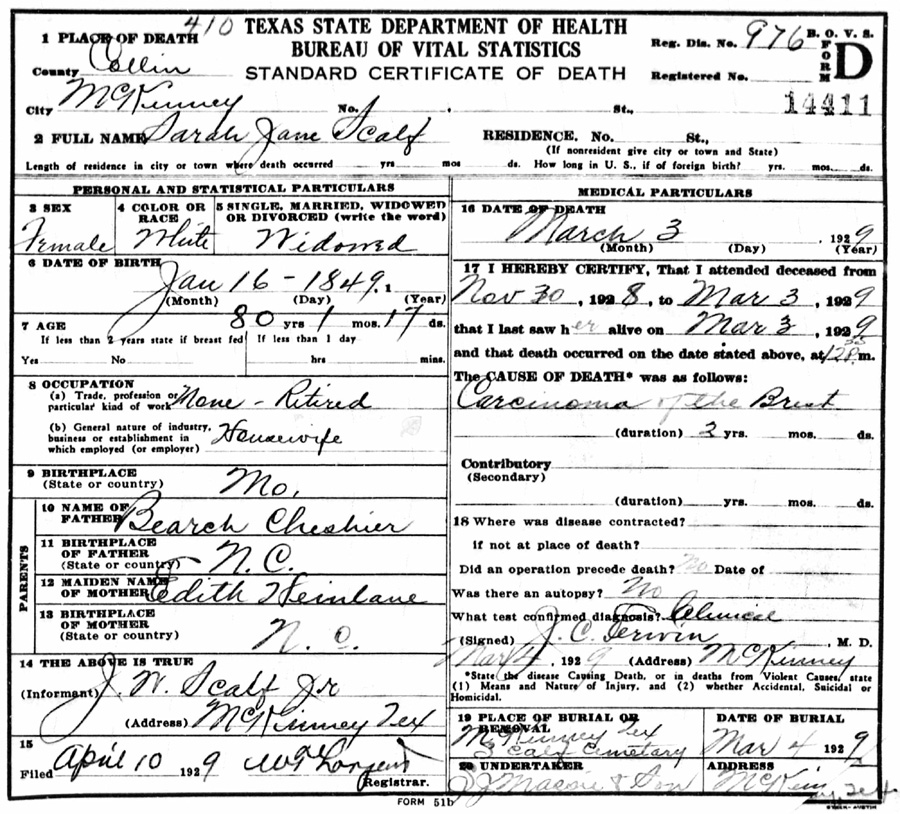 410 TEXAS STATE DEPARTMENT OF HEALTH
BUREAU OF VITAL STATISTICS
STANDARD CERTIFICATE OF DEATH
B. O. V. S.
FORM D
Reg. Dis. No. 976
Registered No.
14411
1 PLACE OF DEATH
County Collin
City McKinney No. St.,
2 FULL NAME Sarah Jane Scalf
RESIDENCE. No. St.,
(If nonresident give city or town and State)
Length of residence in city or town where death occurred yrs mos ds. How long in U. S., if of foreign birth? yrs. mos. ds.
PERSONAL AND STATISTICAL PARTICULARS
3 SEX
Female
4 COLOR OR RACE
White
5 SINGLE, MARRIED, WIDOWED OR DIVORCED (write the word)
Widowed
6 DATE OF BIRTH
Jan 16 - 1849.
(Month) (Day) (Year)
7 AGE 80 yrs 1 mos. 17 ds.
If less than 2 years state if breast fed If less than 1 day
Yes No hrs mins.
8 OCCUPATION
(a) Trade, profession or
particular kind of work None - Ritired
(b) General nature of industry,
business or establishment in
which employed (or employer) Housewife
9 BIRTHPLACE
(State or country) Mo.
PARENTS
10 NAME OF
FATHER Bearch Cheshier
11 BIRTHPLACE
OF FATHER
(State or country) N.C.
12 MAIDEN NAME
OF MOTHER Edith
13 BIRTHPLACE
OF MOTHER
(State or country) N. C.
14 THE ABOVE IS TRUE
(Informant) J. W. Scalf Jr
(Address) McKinney Tex
15
Filed April 10 1929
Registrar.
MEDICAL PARTICULARS
16 DATE OF DEATH
March 3 , 1929
(Month) (Day) (Year)
17 I HEREBY CERTIFY, That I attended deceased from
Nov 30, 1928, to Mar 3, 1929
that I last saw her alive on Mar 3, 1929
and that death occurred on the date stated above, at m.
The CAUSE OF DEATH* was as follows:
Carcinoma of the Brest
(duration) 2 yrs. mos. ds.
Contributory
(Secondary)
(duration) yrs. mos. ds.
18 Where was disease contracted?
if not at place of death?
Did an operation precede death? No Date of
Was there an autopsy? No
What test confirmed diagnosis? Clinical
(Signed) J. C. Erwin, M. D.
Mar 4, 1929 (Address) McKinney
*State the disease Causing Death, or in deaths from Violent Causes, state
(1) Means and Nature of Injury, and (2) whether Accidental, Suicidal or
Homicidal.
19 PLACE OF BURIAL OR
REMOVAL
McKinney Tex
Scalf Cemetary
DATE OF BURIAL
Mar 4 1929
20 UNDERTAKER
Massie & Son
ADDRESS
FORM 51b